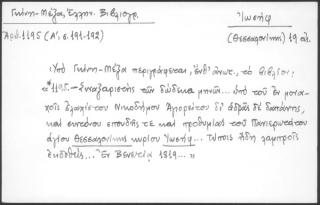 Γκίνη-Μέξα, Ἑλλην. Βιβλιογρ.
Ἰωσήφ
Ἀρ. 1195 (Α', σ. 191-192)
(Θεσσαλονίκης) 19 αἰ.
Ὑπό Γκίνη-Μέξα περιγράφεται, ἔνθ' ἀνωτ., τό βιβλίον:
«*1195. - Συναξαριστής τῶν δώδεκα μηνῶν... ὑπό τοῦ ἐν μονα-
χοῖς ἐλαχίστου Νικοδήμου Ἁγιορείτου δι' ἁδρᾶς δέ δαπάνης,
καί συντόνου σπουδῆς τε καί προθυμίας τοῦ Πανιερωτάτου
ἁγίου Θεσσαλονίκης κυρίου Ἰωσήφ... τύποις ἤδη λαμπροῖς
ἐκδοθείς... Ἐν Βενετίᾳ 1819... »